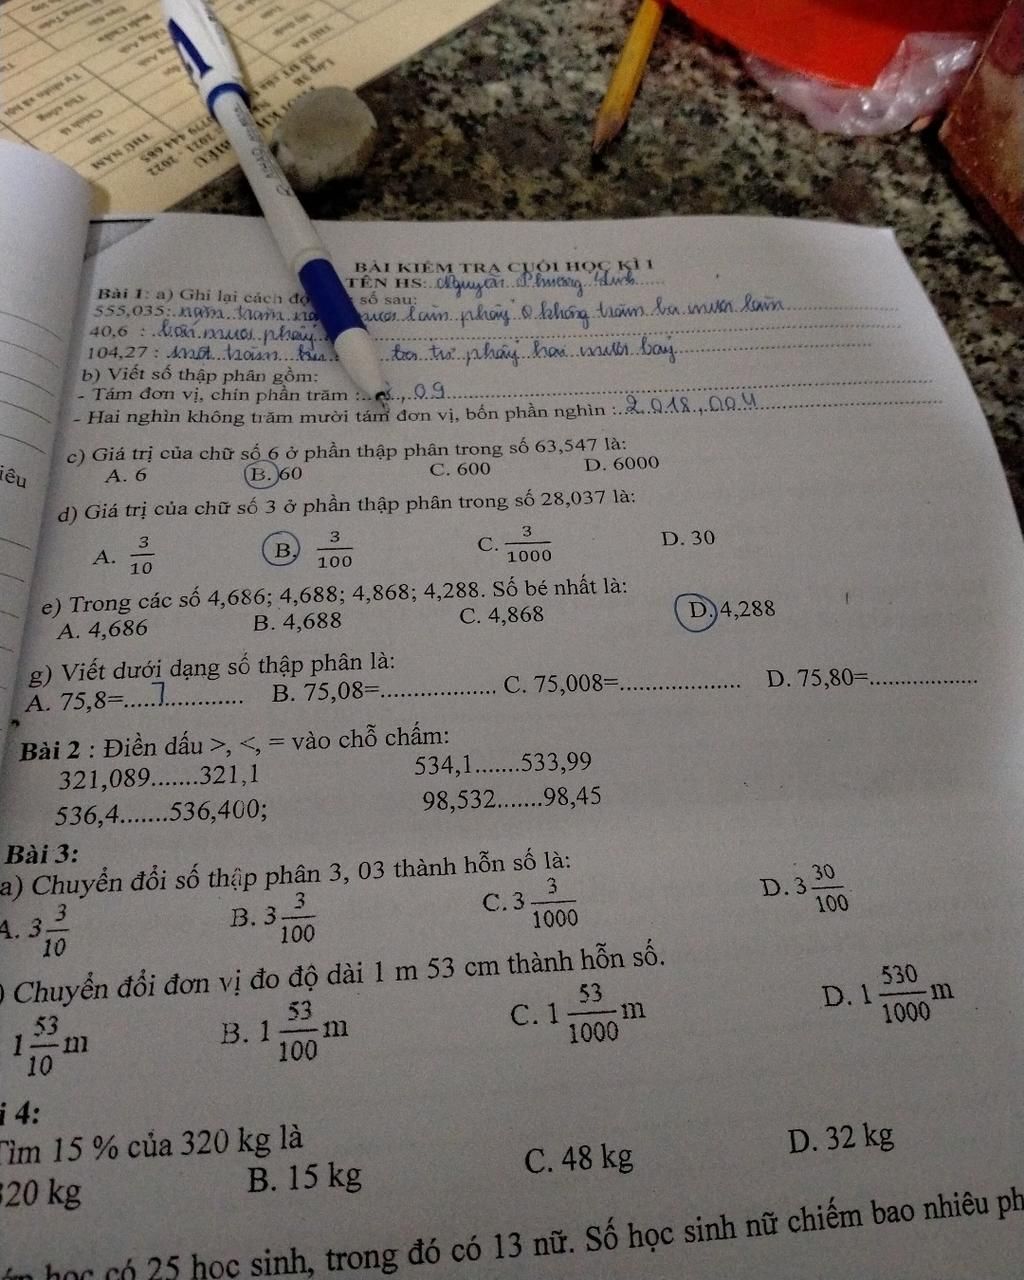 BÀI KIỂM TRA CUỐI HỌC KÌ 1
TÊN HS: Nguyễn Phương Linh
Bài 1: a) Ghi lại cách số sau:
555,035: năm trăm lăm phẩy không trăm ba mươi lăm
40,6 : bốn mươi phẩy
104,27 : Một trăm phẩy hai mươi bảy
b) Viết số thập phân gồm:
- Tám đơn vị, chín phần trăm : 8,09
- Hai nghìn không trăm mười tám đơn vị, bốn phần nghìn : 2.018,004
c) Giá trị của chữ số 6 ở phần thập phân trong số 63,547 là:
A. 6 B. 60 C. 600 D. 6000
d) Giá trị của chữ số 3 ở phần thập phân trong số 28,037 là:
A. 3/10 B. 3/100 C. 3/1000 D. 30
e) Trong các số 4,686; 4,688; 4,868; 4,288. Số bé nhất là:
A. 4,686 B. 4,688 C. 4,868 D. 4,288
g) Viết dưới dạng số thập phân là:
A. 75,8=.....7............ B. 75,08=................. C. 75,008=.................. D. 75,80=................
Bài 2 : Điền dấu >, <, = vào chỗ chấm:
321,089.......321,1 534,1.......533,99
536,4.......536,400; 98,532.......98,45
Bài 3:
a) Chuyển đổi số thập phân 3, 03 thành hỗn số là:
A. 3 3/10 B. 3 3/100 C. 3 3/1000 D. 3 30/100
) Chuyển đổi đơn vị đo độ dài 1 m 53 cm thành hỗn số.
1 53/10 m B. 1 53/100 m C. 1 53/1000 m D. 1 530/1000 m
i 4:
Tìm 15 % của 320 kg là
320 kg B. 15 kg C. 48 kg D. 32 kg
học có 25 học sinh, trong đó có 13 nữ. Số học sinh nữ chiếm bao nhiêu ph